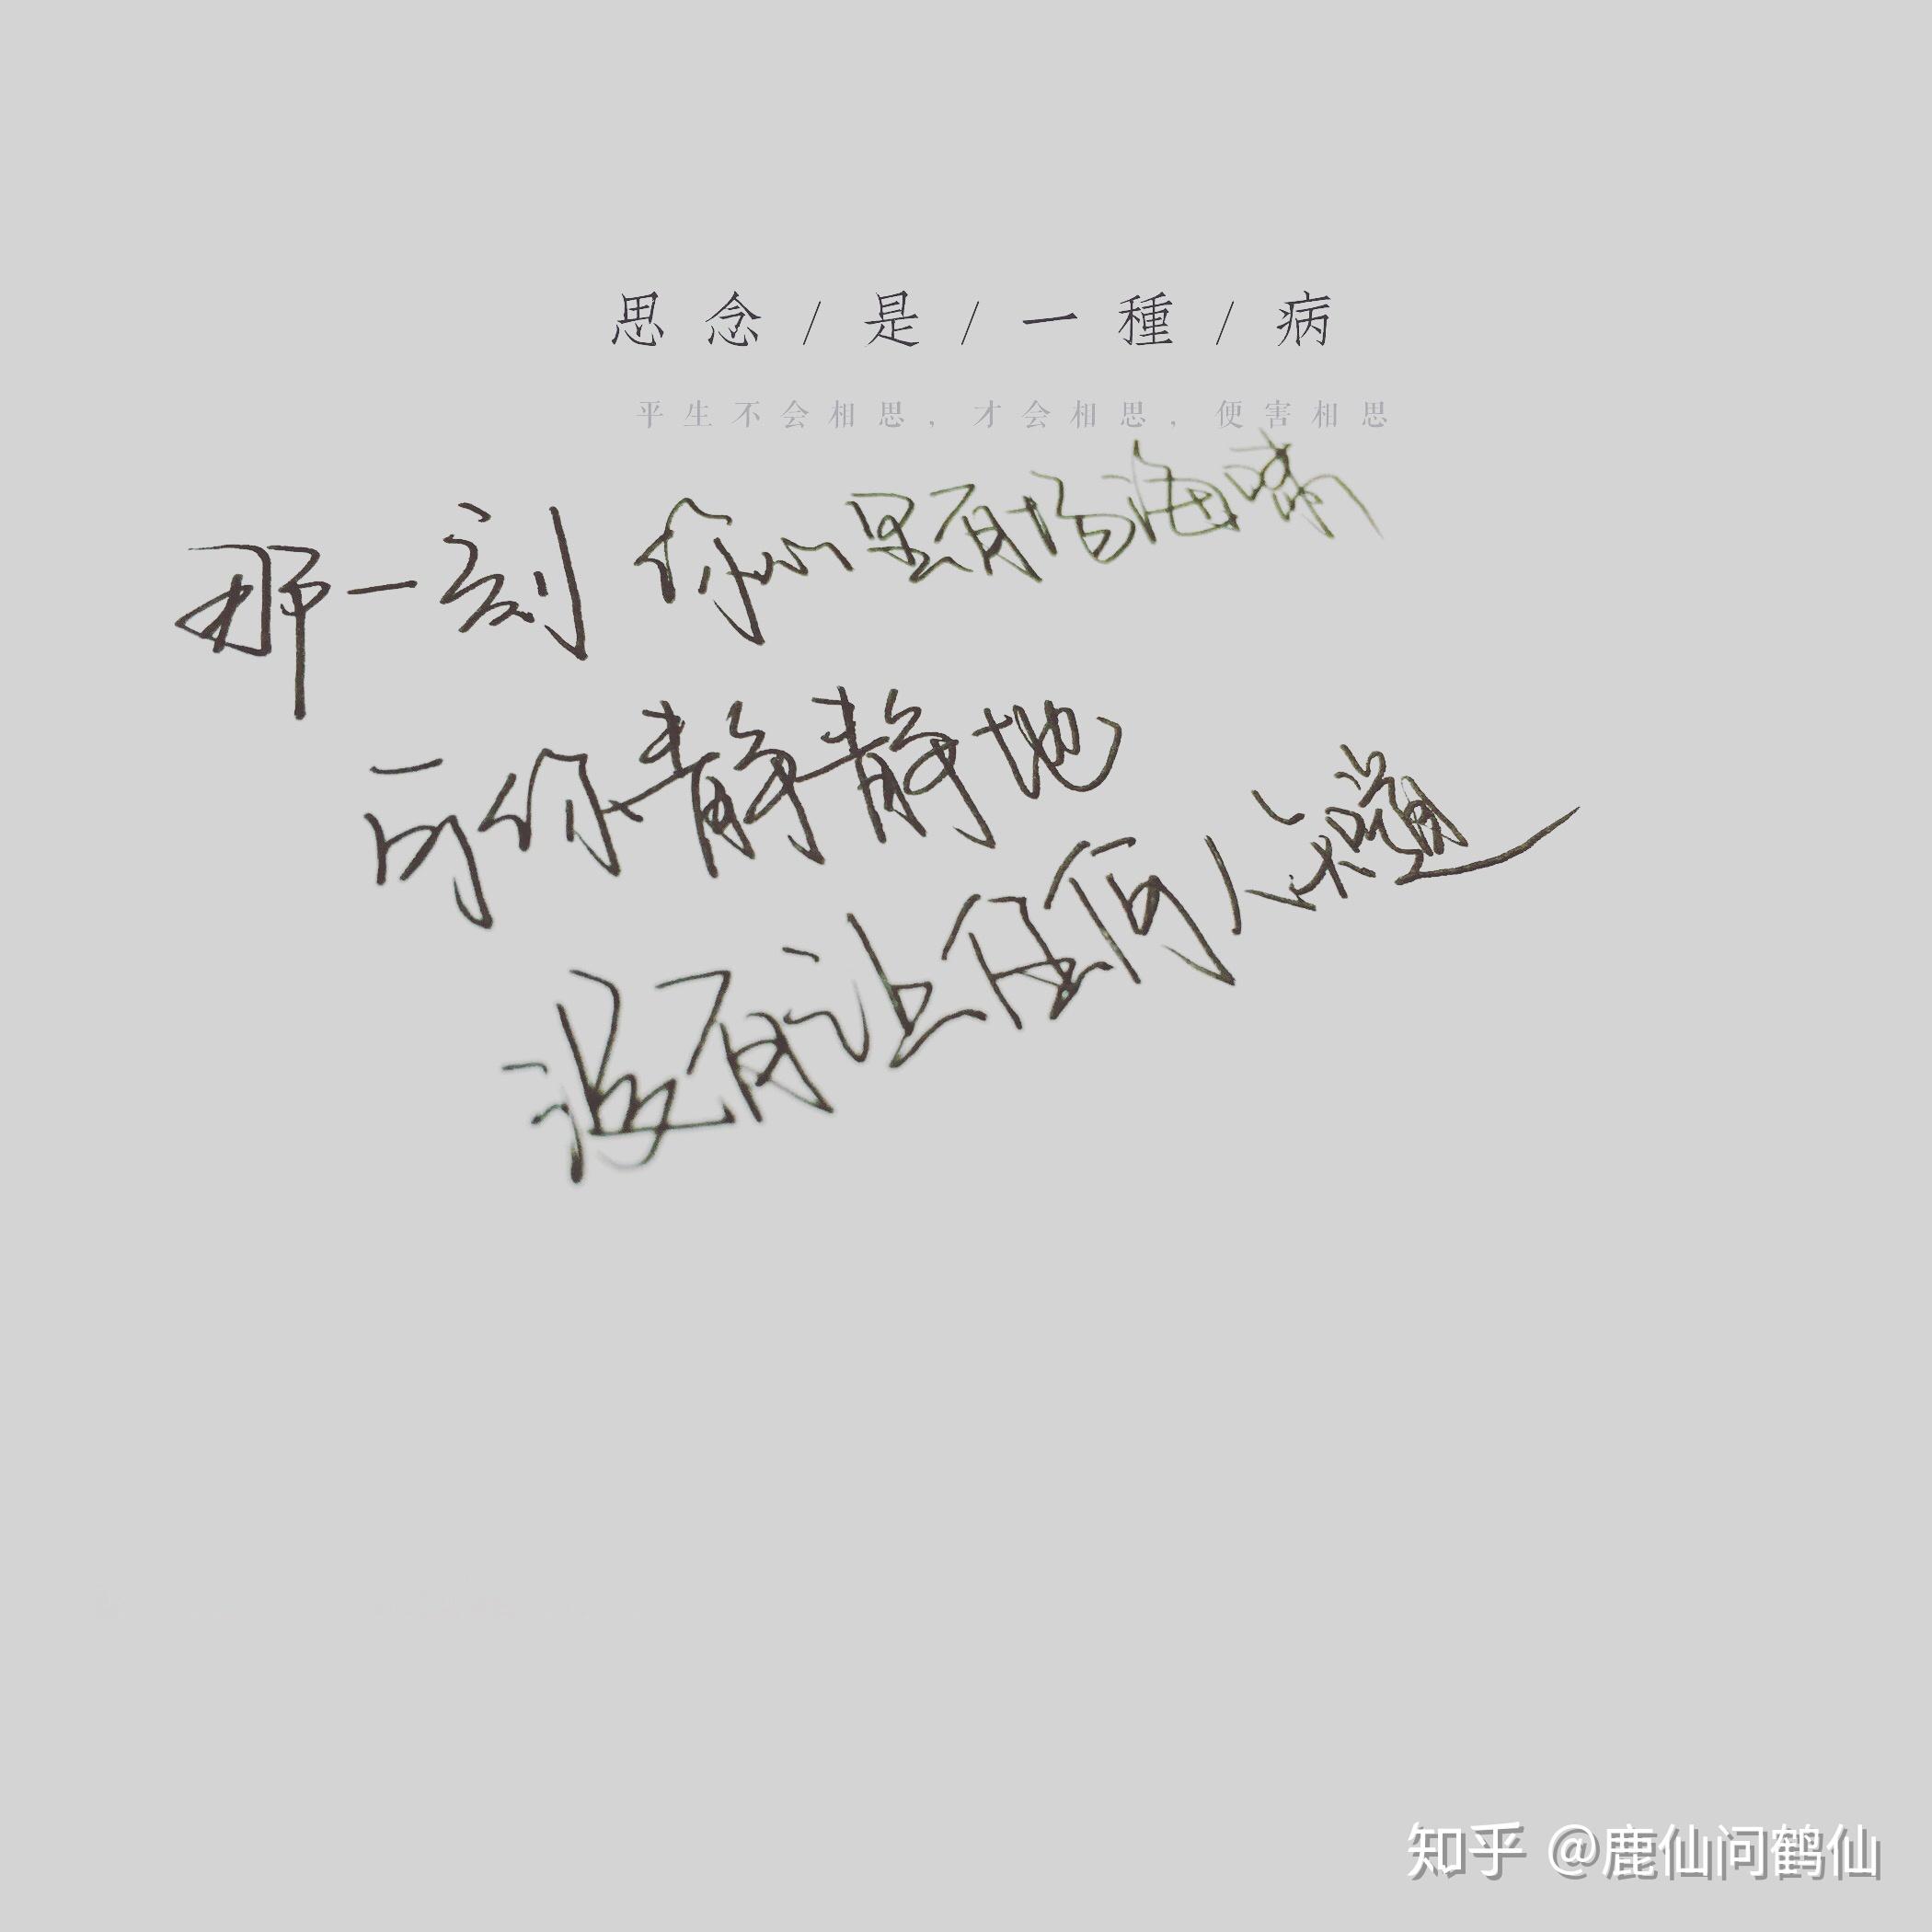 思念/是/一種/病
平生不会相思，才会相思，便害相思
那一刻 你心里有场海啸
可你静静地
没有让任何人知道
知乎 @鹿仙问鹤仙